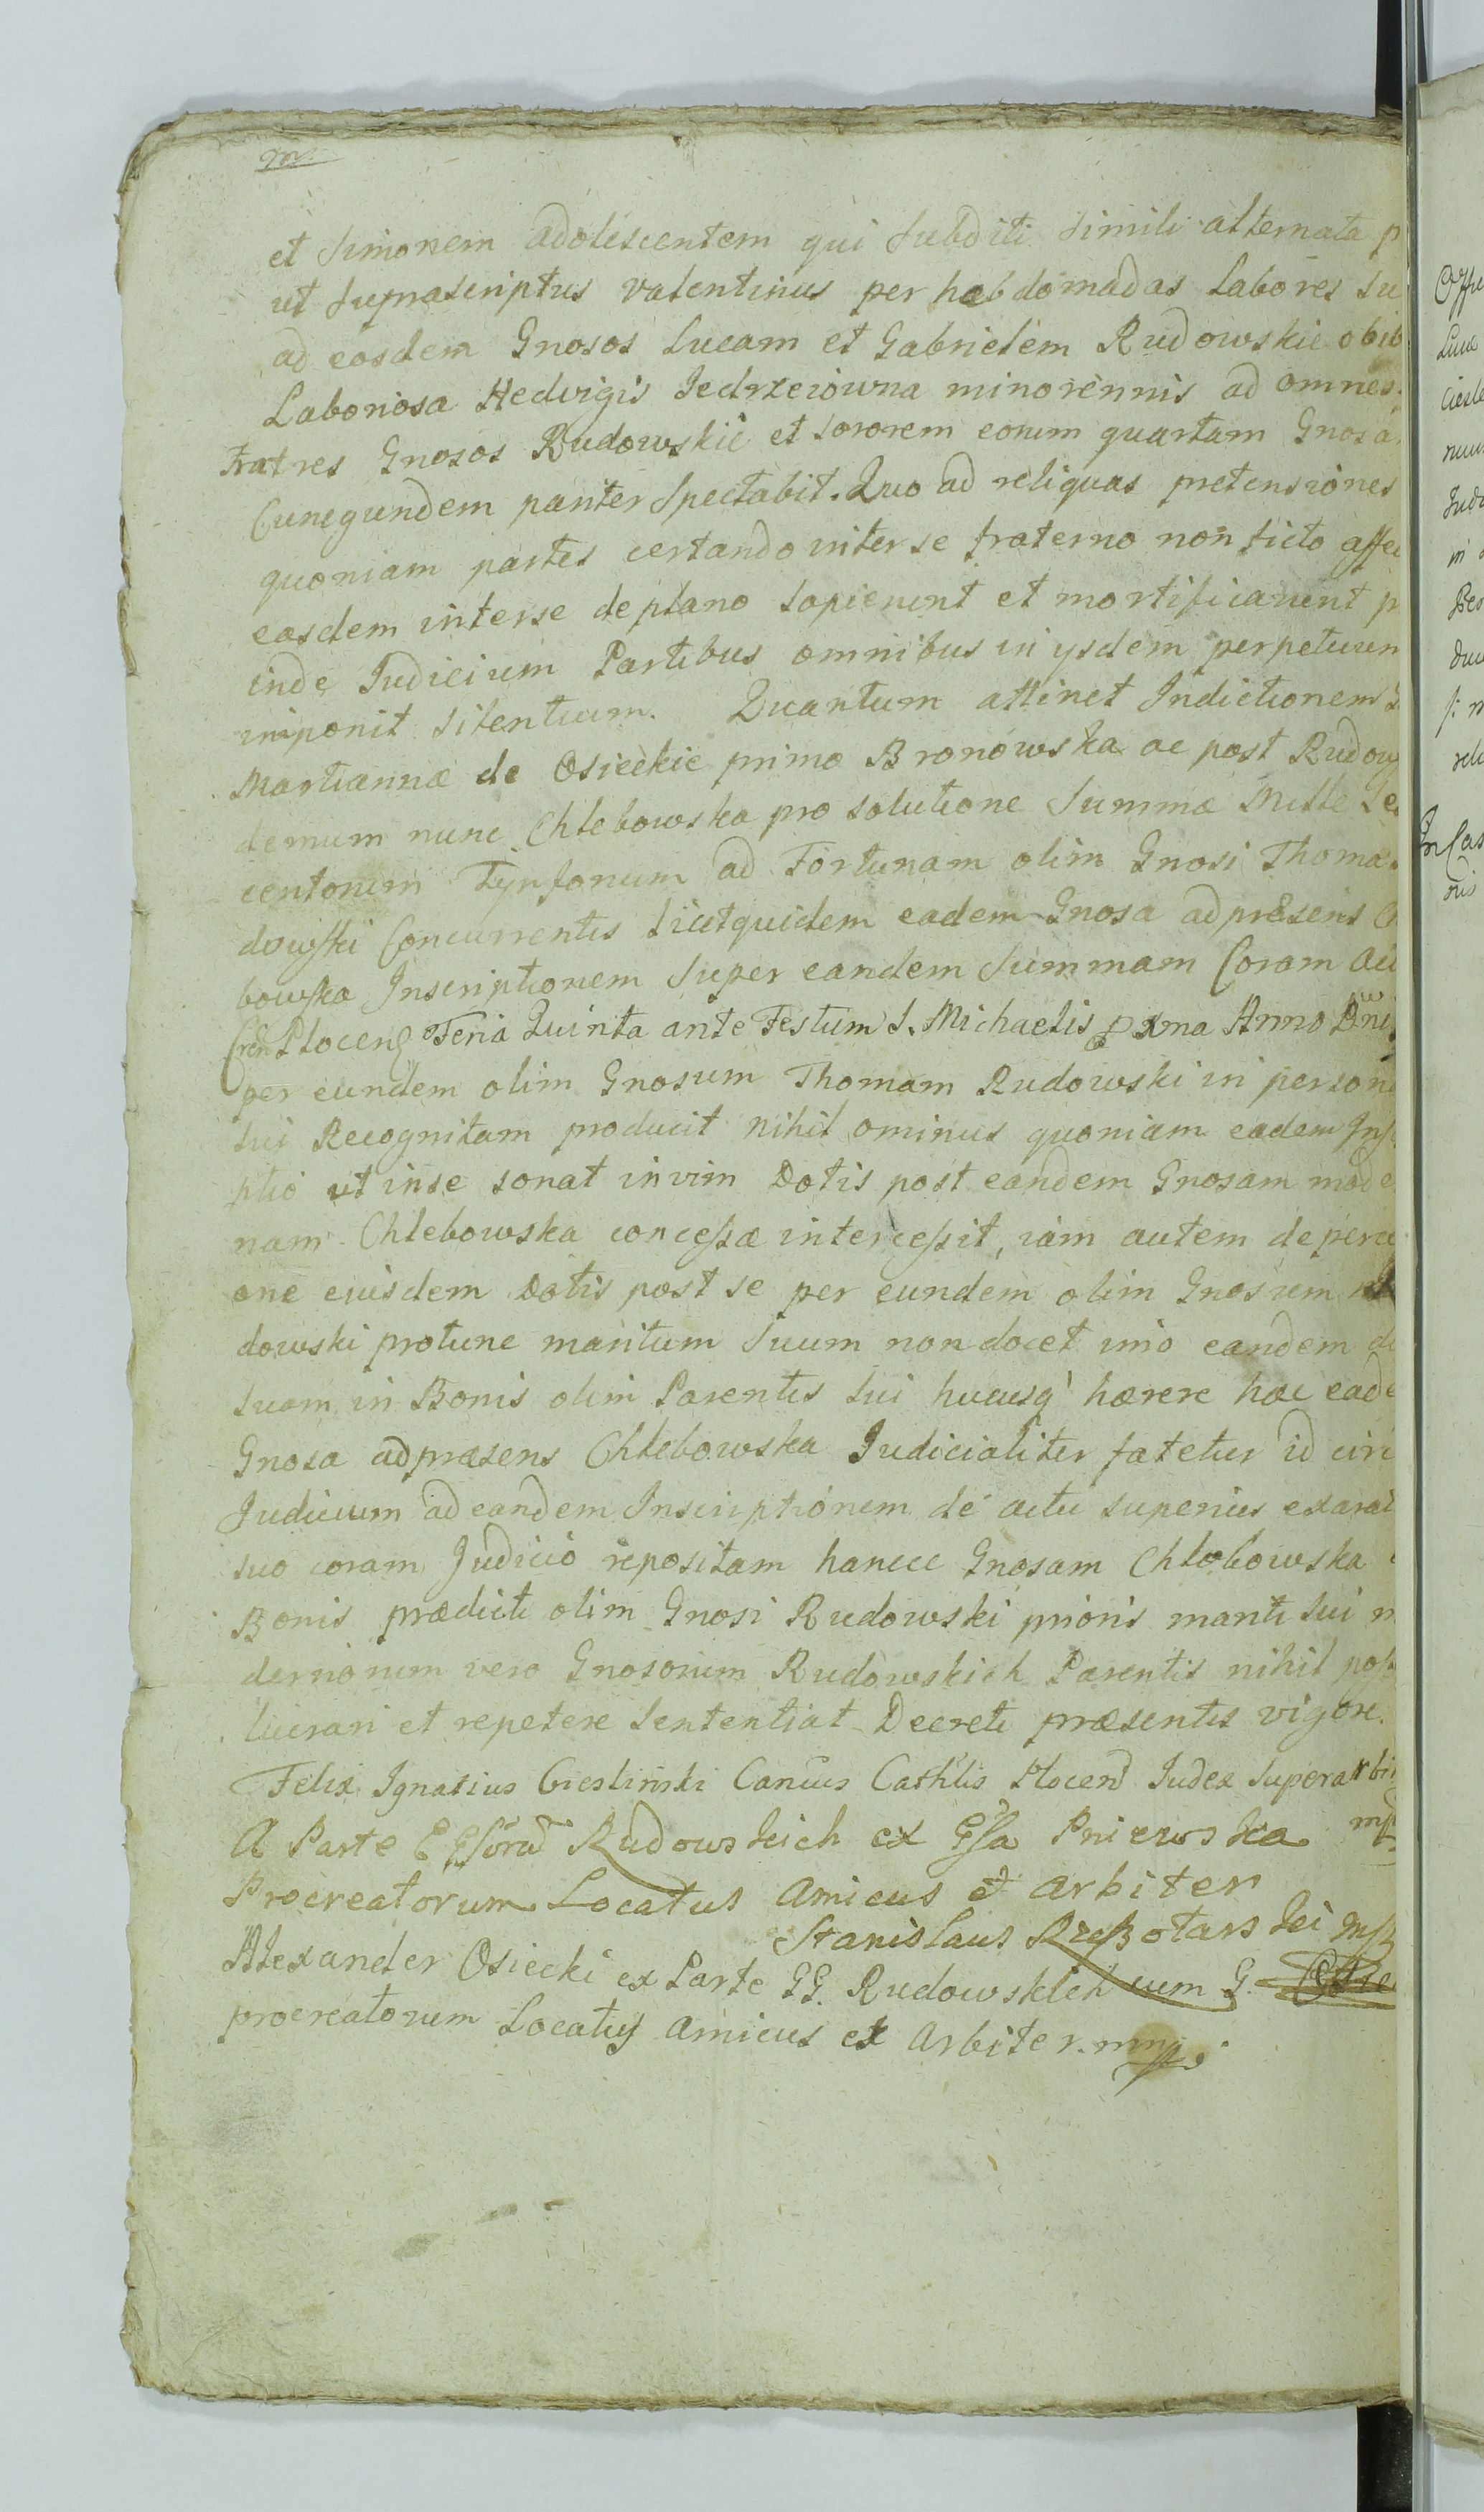 et Simonem adolescentem qui Subditi simili alternata p
ut Suprascriptus Valentinus per habdomadas Labores su
ad eosdem Gnosos Lucam et Gabrielem Rudowskie obib
Laboriosa Hedvigis Jedrzeiowna minorennis ad omnes
Fratres Gnosos Rudowskie et Sororem eorum quartam Gnosa
Cunegundem pariter Spectabit. Quo ad reliquas pretensiones
quoniam partes certando inter se fraterno non ficto affec
easdem interse de plano sopierunt et mortificarunt p
inde Judicium Partibus omnibus in ysdem perpetuum
imponit silentium. Quantum attinet Indictionem
Martiannæ de Osieckie primo Bronowska ac post Rudow
demum nunc Chlebowska pro solutione Summæ Mille Se
centorum Tynfonum ad Fortunam olim Gnosi Thomæ
dowski Concurrentis licet quidem eadem Gnosa ad præsens C
bowska Inscriptionem Super eandem Summam Coram Act
Cren Plocens Feria Quinta ante Festum S. Michaelis pxma Anno Dni
per eundem olim Gnosum Thomam Rudowski in person
sui Recognitam producit nihil ominus quoniam eadem Ins
ptio ut inse sonat in vim Dotis post eandem Gnosam mode
nam Chlebowska concessæ intercessit, iam autem de perce
one eiusdem Dotis post se per eundem olim Gnosum
dowski protunc maritum Suum non docet imo eandem do
suam in Bonis olim Parentis sui hucusq' hærere hæc eade
Gnosa adpræsens Chlebowska Judicialiter fatetur id circ
Judicium ad eandem Inscriptionem de actu superius exarat
suo coram Judicio repositam hancce Gnosam Chlebowska
Bonis prædicti olim Gnosi Rudowski prioris mariti sui m
dernorum vero Gnosorum Rudowskich Parentis nihil poss
lucrari et repetere sententiat Decreti præsentis vigore.
Felix Ignatius Ciesliński Cancus Cathlis Plocens Judex Superarbi
A Parte GGsorum Rudowskich ex Gsa Pniewska mp
Procreatorum Locatus Amicus et Arbiter
Stanislaus Rzeszotarski mp
Alexander Osiecki ex Parte GG. Rudowskich cum G.
procreatorum Locatus Amicus et Arbiter. mp